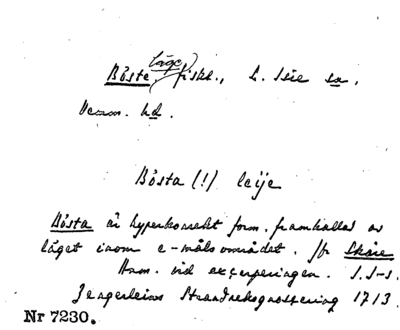 läge
Båste, fiskl., L. Isie sn,
Vemm. hd.
Båsta (!) leije
Båsta är hyperkorrekt form, framkallad av
läget inom e-målsområdet. Jfr Skåre
Hsm. vid excerperingen. S.S-S.
Strandrekognoscering 1713.
Nr 7230.